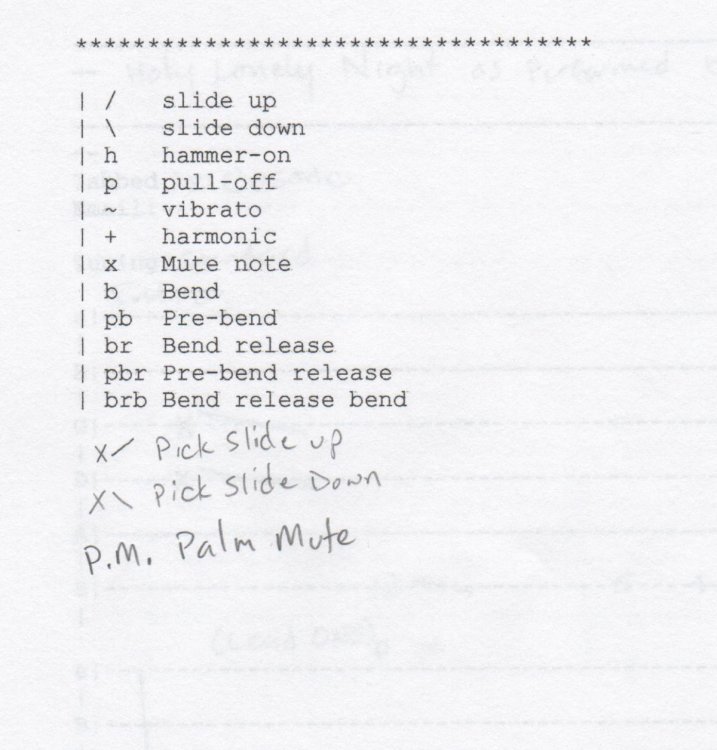 ************************************
| / slide up
| \ slide down
| h hammer-on
| p pull-off
| ~ vibrato
| + harmonic
| x Mute note
| b Bend
| pb Pre-bend
| br Bend release
| pbr Pre-bend release
| brb Bend release bend
x/ Pick Slide up
x\ Pick Slide Down
P.M. Palm Mute